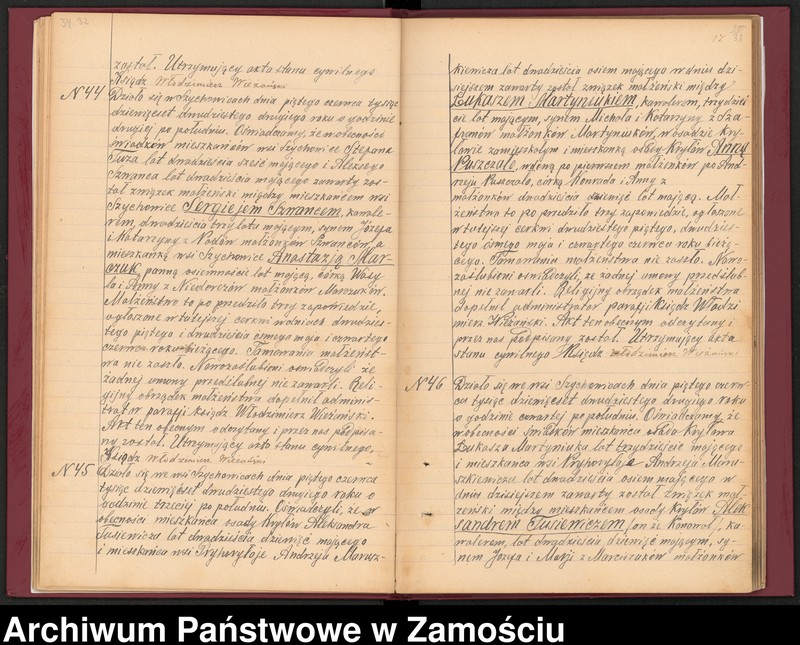 34 32
został. Utrzymujący akta stanu cywilnego
Ksiądz Włodzimierz
N 44 Działo się w Szychowicach dnia piątego czerwca tysiąc
dziewięćset dwudziestego drugiego roku o godzinie
drugiej po południu. Oświadczamy, że w obecności
świadków mieszkańców wsi Szychowice Stepana
lat dwadzieścia sześć mającego i Aleksego
Szwanca lat dwadzieścia mającego zawarty zos-
tał związek małżeński między mieszkańcem wsi
Szychowice Sergiejem Szwancem, kawale-
rem, dwadzieścia trzy lata mającym, synem Józefa
i Katarzyny z małżonków Szwanców, a
mieszkanką wsi Szychowice Anastazją Mar-
czuk, panną osiemnaście lat mającą, córką Wasy-
la i Anny z małżonków Marczuków.
Małżeństwo to poprzedziły trzy zapowiedzie,
ogłoszone w tutejszej cerkwi w dniach dwudzies-
tego piątego i dwudziestego ósmego maja i czwartego
czerwca roku bieżącego. Tamowania małżeńst-
wa nie zaszło. Nowozaślubieni oświadczyli że
żadnej umowy przedślubnej nie zawarli. Reli-
gijny obrządek małżeństwa dopełnił adminis-
trator parafji Ksiądz Włodzimierz
Akt ten obecnym odczytany i przez nas podpisa-
ny został. Utrzymujący akta stanu cywilnego,
Ksiądz Włodzimierz
N 45 Działo się we wsi Szychowicach dnia piątego czerwca
tysiąc dziewięćset dwudziestego drugiego roku o
godzinie trzeciej po południu. Oświadczyli, że w
obecności mieszkańca osady Kryłów Aleksandra
Tusiewicza lat dwadzieścia dziewięć mającego
i mieszkańca wsi Andrzeja Marusz-
12 33
kiewicza lat dwadzieścia osiem mającego w dniu dzi-
siejszem zawarty został związek małżeński między
Łukaszem Martyniukiem, kawalerem, trzydzieś-
ci lat mającym, synem Michała i Katarzyny z Sza-
franów małżonków Martyniuków, w osadzie Kry-
łowie zamieszkałym i mieszkanką osady Kryłów Anną
Puszczało, wdową po pierwszem małżonku po And-
rzeju Puszczało, córką Konrada i Anny z
małżonków dwadzieścia dziewięć lat mającą. Mał-
żeństwo to poprzedziło trzy zapowiedzie, ogłoszone
w tutejszej cerkwi dwudziestego piątego, dwudzies-
tego ósmego maja i czwartego czerwca roku bieżą-
cego. Tamowania małżeństwa nie zaszło. Nowo-
zaślubieni oświadczyli, że żadnej umowy przedślub-
nej nie zawarli. Religijny obrządek małżeństwa
dopełnił administrator parafji Ksiądz Włodzi
mierz Akt ten obecnym odczytany i
przez nas podpisany został. Utrzymujący akta
stanu cywilnego Ksiądz Włodzimierz
N 46 Działo się we wsi Szychowicach dnia piątego czerw-
ca tysiąc dziewięćset dwudziestego drugiego roku
o godzinie czwartej po południu. Oświadczamy, że
w obecności świadków mieszkańca osada Kryłowa
Łukasza Martyniuka lat trzydzieście mającego
i mieszkańca wsi Andrzeja Maru-
szkiewicza lat dwadzieścia osiem mającego w
dniu dzisiejszem zawarty został związek mał-
żeński między mieszkańcem osady Kryłów Alek-
sandrem Tusiewiczem /on że Konował/, ka-
walerem, lat dwadzieścia dziewięć mającym, sy-
nem Józefa i Marji z Marciszuków małżonków
Archiwum Państwowe w Zamościu